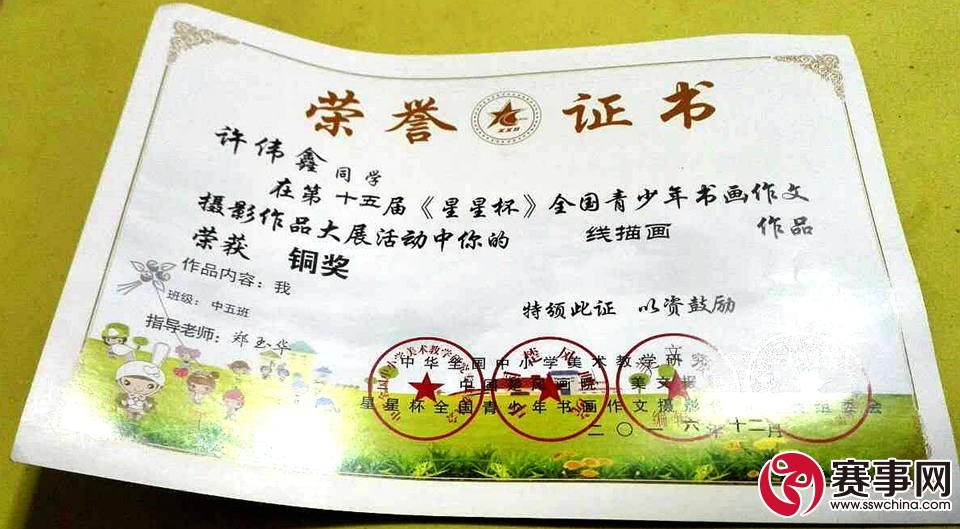 荣誉证书
许伟鑫同学
在第十五届《星星杯》全国青少年书画作文
摄影作品大展活动中你的 线描画 作品
荣获 铜奖
作品内容：我
班级：中五班
指导老师：郑玉华
特颁此证 以资鼓励
中华全国中小学美术教学研究
中国楚风画院 美文报
星星杯全国青少年书画作文摄影 组委会
二〇一六年十二月
XXB
赛事网
www.sswchina.com